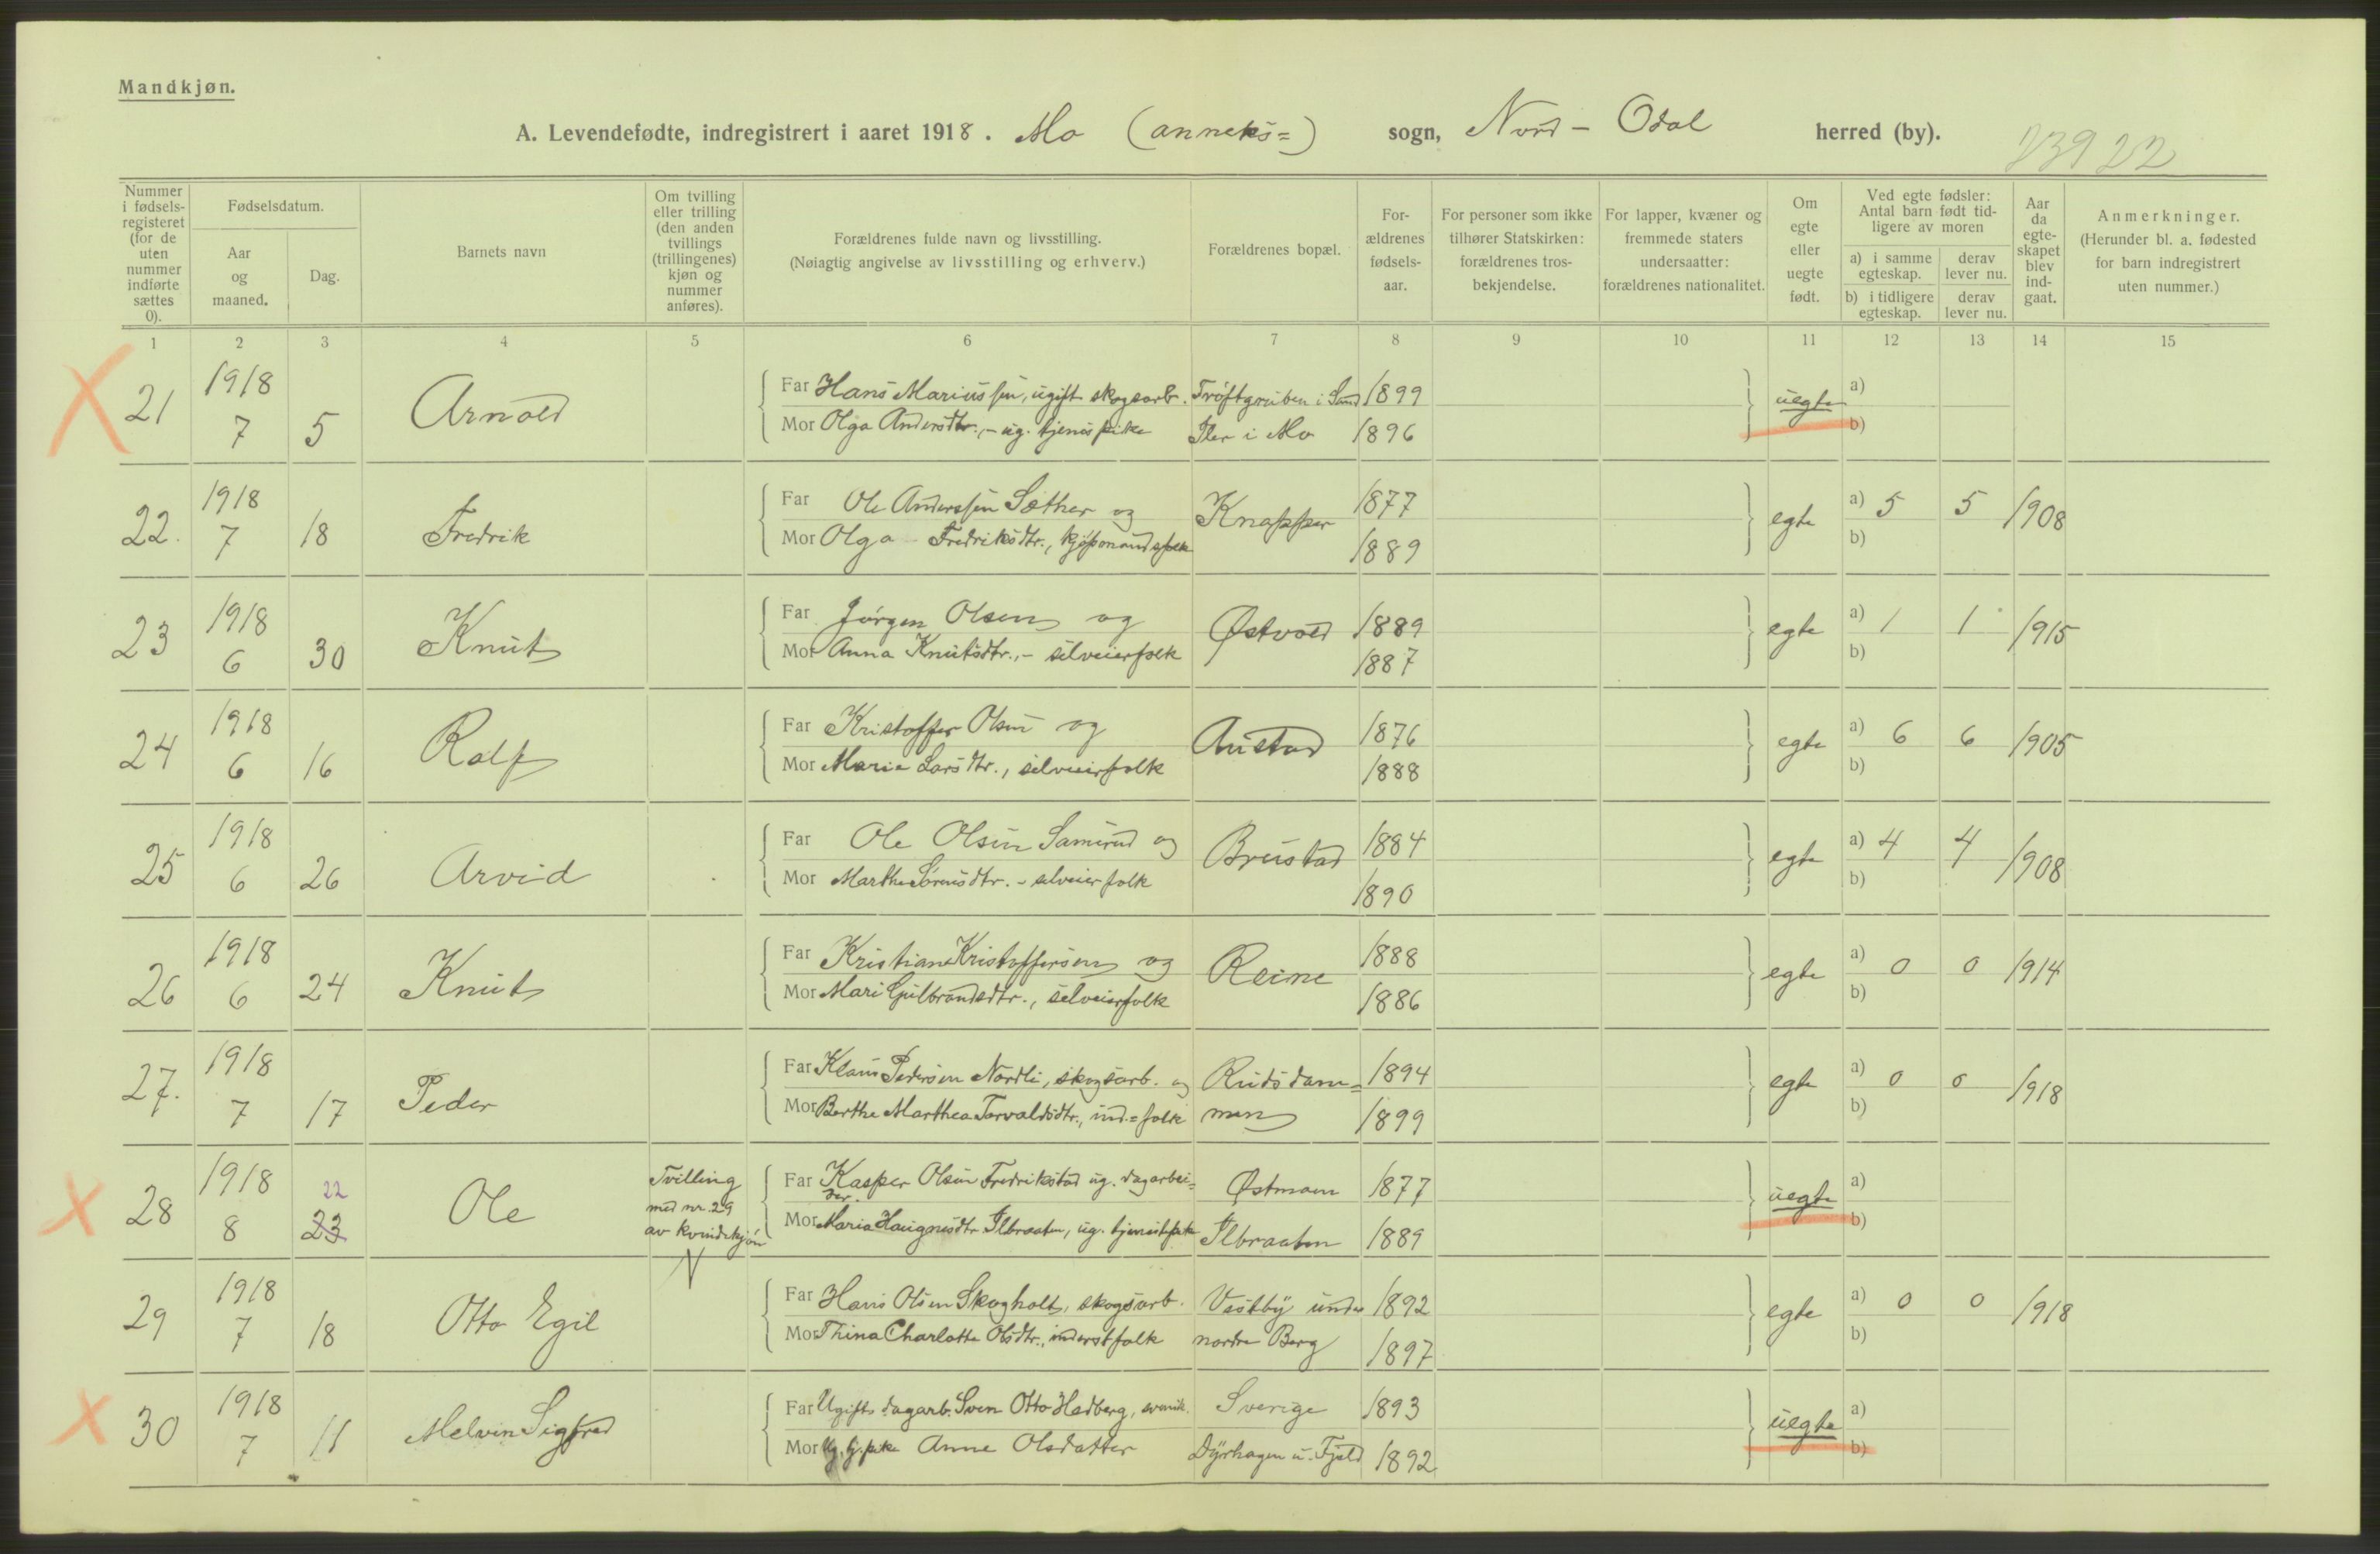 Mandkjøn.
A. Levendefødte, indregistrert i aaret 1918. Mo (anneks=) sogn, Nord - Odal herred (by). 23922
Nummer i fødsels-registeret (for de uten nummer indførte sættes 0).
Fødselsdatum.
Aar og maaned.
Dag.
Barnets navn
Om tvilling eller trilling (den anden tvillings (trillingenes) kjøn og nummer anføres).
Forældrenes fulde navn og livsstilling.
(Nøiagtig angivelse av livsstilling og erhverv.)
Forældrenes bopæl.
For-ældrenes fødsels-aar.
For personer som ikke tilhører Statskirken: forældrenes tros-bekjendelse.
For lapper, kvæner og fremmede staters undersaatter: forældrenes nationalitet.
Om egte eller uegte født.
Ved egte fødsler: Antal barn født tid-ligere av moren
a) i samme egteskap. derav lever nu.
b) i tidligere egteskap. derav lever nu.
Aar da egte-skapet blev ind-gaat.
Anmerkninger.
(Herunder bl. a. fødested for barn indregistrert uten nummer.)
1 2 3 4 5 6 7 8 9 10 11 12 13 14 15
21 1918 7 5 Arnold
Far Hans Mariussen, ugift skogsarb. Trøftgruben i Sand 1899 uegte a)
Mor Olga Andersdtr., - ug. tjenestpike Iler i Mo 1896 b)
22. 1918 7 18 Fredrik
Far Ole Anderssen Sæther og Knapper 1877 egte a) 5 5 1908
Mor Olga Fredriksdtr., kjøpmandsfolk 1889 b)
23 1918 6 30 Knut
Far Jørgen Olsen og Østvold 1889 egte a) 1 1 1915
Mor Anna Knutsdtr., - selveierfolk 1887 b)
24 1918 6 16 Ralf
Far Kristoffer Olsen og Austad 1876 egte a) 6 6 1905
Mor Marie Larsdtr., selveierfolk 1888 b)
25 1918 6 26 Arvid
Far Ole Olsen Samurud og Brustad 1884 egte a) 4 4 1908
Mor Marthe Sørensdtr. - selveierfolk 1890 b)
26 1918 6 24 Knut
Far Kristian Kristoffersen og Reine 1888 egte a) 0 0 1914
Mor Mari Gulbrandsdtr., selveierfolk 1886 b)
27. 1918 7 17 Peder
Far Klaus Pedersen Nordli, skogsarb. og Rudsdam= 1894 egte a) 0 0 1918
Mor Berthe Marthea Torvaldsdtr., ind.=folk men 1899 b)
28 1918 8 22 23 Ole Tvilling med nr. 29 av kvindekjøn
Far Kasper Olsen Fredrikstad ug. dagarbei=der. Østmoen 1877 uegte a)
Mor Maria Haugnesdtr Ilbraaten, ug. tjenestpike Ilbraaten 1889 b)
29 1918 7 18 Otto Egil
Far Hans Olsen Skogholt, skogsarb. Vestby under 1892 egte a) 0 0 1918
Mor Thina Charlotte Olsdtr., inderstfolk nordre Berg 1897 b)
30 1918 7 11 Melvin Sigfred
Far Ugift dagarb. Sven Otto Hedberg, svensk. Sverige 1893 uegte a)
Mor Ug. tj.pike Anne Olsdatter Dyrhagen u. Fjeld 1892 b)